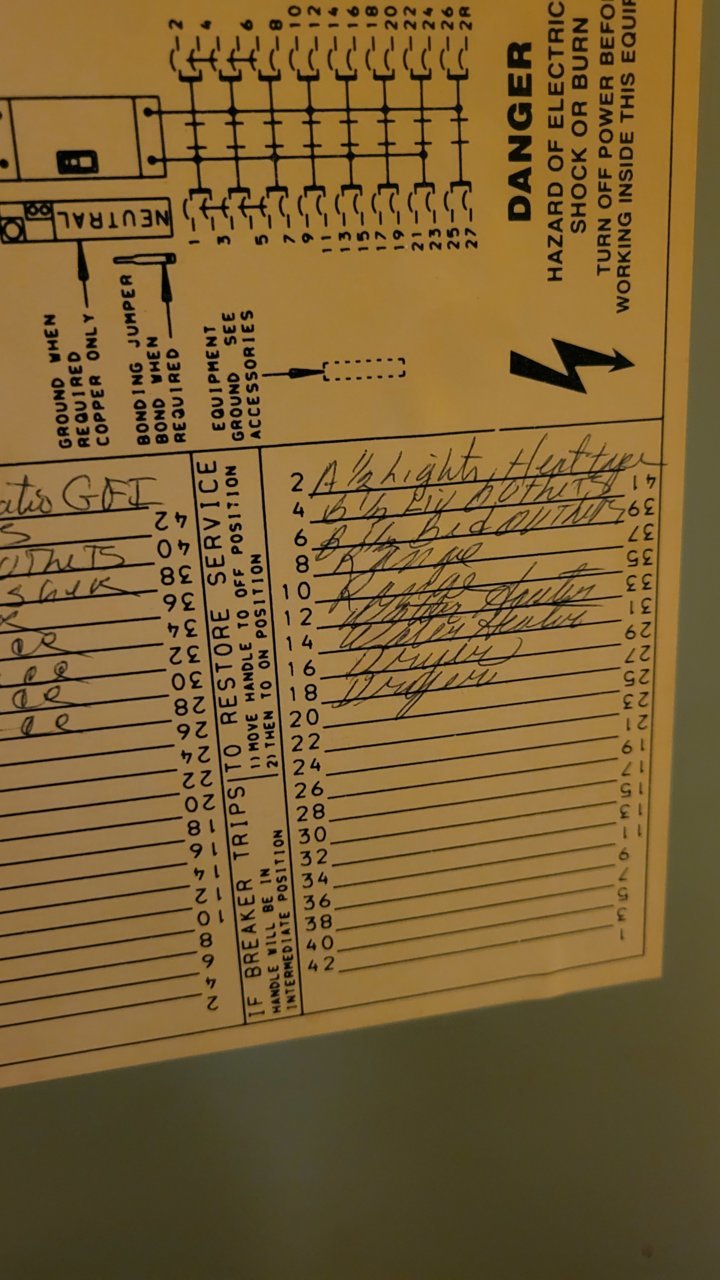 2
4
6
8
10
12
14
16
18
20
22
24
26
28
1
3
5
7
9
11
13
15
17
19
21
23
25
27
NEUTRAL
GROUND WHEN
REQUIRED
COPPER ONLY
BONDING JUMPER
BOND WHEN
REQUIRED
EQUIPMENT
GROUND SEE
ACCESSORIES
DANGER
HAZARD OF ELECTRIC
SHOCK OR BURN
TURN OFF POWER BEFO
WORKING INSIDE THIS EQUIP
GFI 42
40
38
36
34
32
30
28
26
24
22
20
18
16
14
12
10
8
6
4
2
IF BREAKER TRIPS TO RESTORE SERVICE
HANDLE WILL BE IN
INTERMEDIATE POSITION
1) MOVE HANDLE TO OFF POSITION
2) THEN TO ON POSITION
2 A 1/2 Lights, Heat tape 41
4 B 1/2 Liv OUtHeTS 39
6 B 1/2 Bed OUTHETS 37
8 Range 35
10 Range 33
12 Water Heater 31
14 Water Heater 29
16 Dryer 27
18 Dryer 25
20 23
22 21
24 19
26 17
28 15
30 13
32 11
34 9
36 7
38 5
40 3
42 1